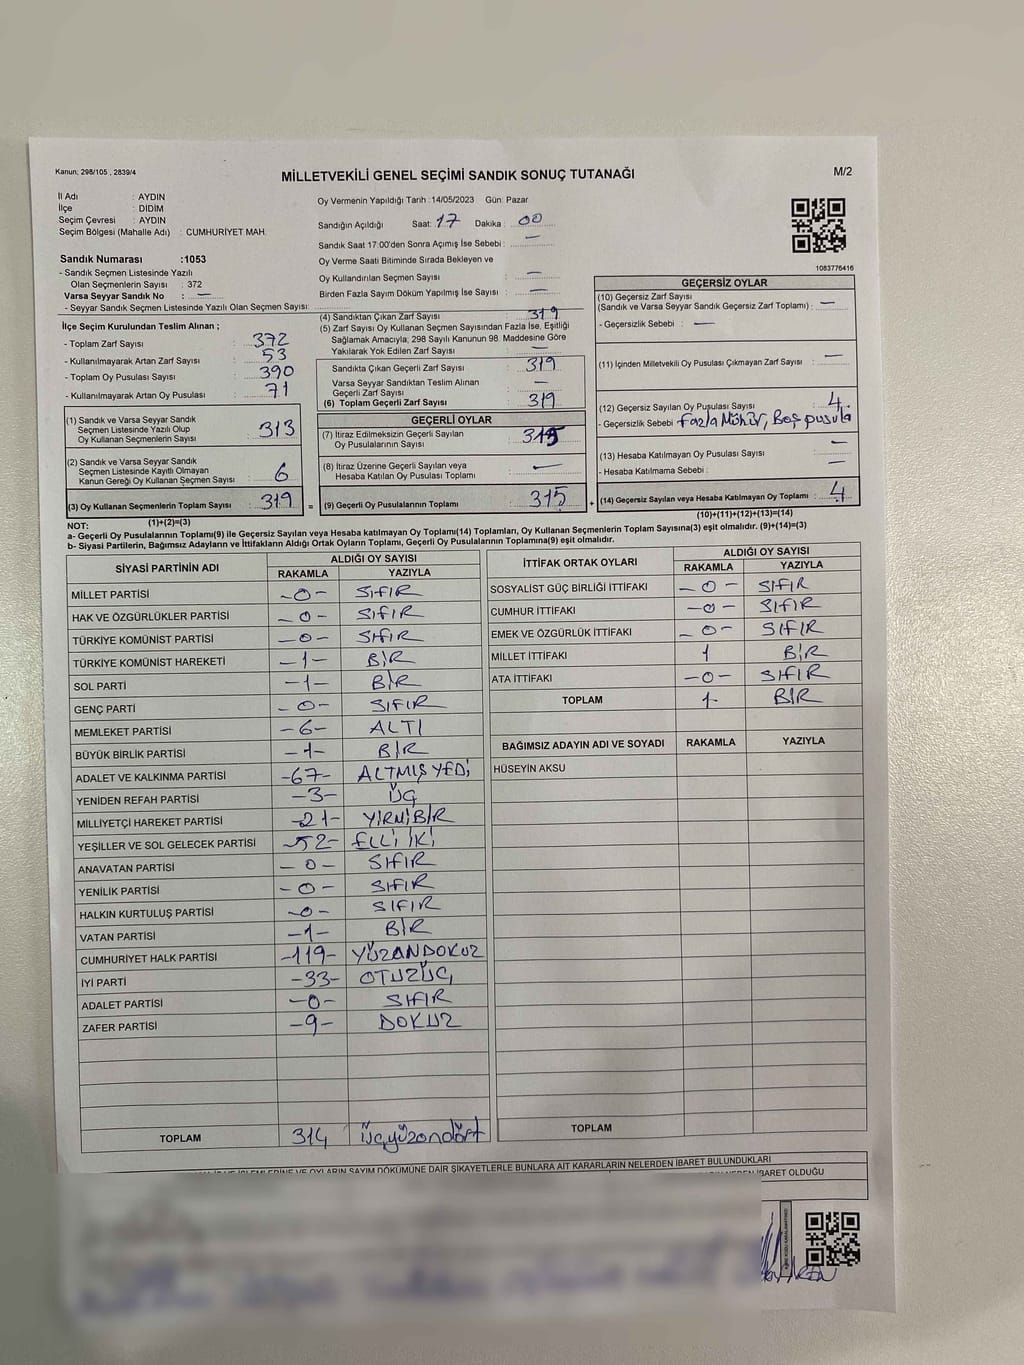 Kanun; 298/105 , 2839/4
MİLLETVEKİLİ GENEL SEÇİMİ SANDIK SONUÇ TUTANAĞI
M/2
İl Adı : AYDIN
İlçe : DİDİM
Seçim Çevresi : AYDIN
Seçim Bölgesi (Mahalle Adı) : CUMHURİYET MAH.
Sandık Numarası :1053
- Sandık Seçmen Listesinde Yazılı
Olan Seçmenlerin Sayısı : 372
Varsa Seyyar Sandık No : —
- Seyyar Sandık Seçmen Listesinde Yazılı Olan Seçmen Sayısı:
Oy Vermenin Yapıldığı Tarih :14/05/2023 Gün: Pazar
Sandığın Açıldığı Saat: 17 Dakika : 00
Sandık Saat 17:00'den Sonra Açımış İse Sebebi : —
Oy Verme Saati Bitiminde Sırada Bekleyen ve
Oy Kullandırılan Seçmen Sayısı : —
Birden Fazla Sayım Döküm Yapılmış İse Sayısı : —
1083776416
İlçe Seçim Kurulundan Teslim Alınan ;
- Toplam Zarf Sayısı : 372
- Kullanılmayarak Artan Zarf Sayısı : 53
- Toplam Oy Pusulası Sayısı : 390
- Kullanılmayarak Artan Oy Pusulası : 71
(1) Sandık ve Varsa Seyyar Sandık
Seçmen Listesinde Yazılı Olup
Oy Kullanan Seçmenlerin Sayısı : 313
(2) Sandık ve Varsa Seyyar Sandık
Seçmen Listesinde Kayıtlı Olmayan
Kanun Gereği Oy Kullanan Seçmen Sayısı : 6
(3) Oy Kullanan Seçmenlerin Toplam Sayısı : 319
(1)+(2)=(3)
(4) Sandıktan Çıkan Zarf Sayısı : 319
(5) Zarf Sayısı Oy Kullanan Seçmen Sayısından Fazla İse, Eşitliği
Sağlamak Amacıyla, 298 Sayılı Kanunun 98. Maddesine Göre
Yakılarak Yok Edilen Zarf Sayısı : —
Sandıkta Çıkan Geçerli Zarf Sayısı : 319
Varsa Seyyar Sandıktan Teslim Alınan
Geçerli Zarf Sayısı : —
(6) Toplam Geçerli Zarf Sayısı : 319
GEÇERLİ OYLAR
(7) İtiraz Edilmeksizin Geçerli Sayılan
Oy Pusulalarının Sayısı : 315
(8) İtiraz Üzerine Geçerli Sayılan veya
Hesaba Katılan Oy Pusulası Toplamı : —
= (9) Geçerli Oy Pusulalarının Toplamı : 315 +
GEÇERSİZ OYLAR
(10) Geçersiz Zarf Sayısı
(Sandık ve Varsa Seyyar Sandık Geçersiz Zarf Toplamı) : —
- Geçersizlik Sebebi : —
(11) İçinden Milletvekili Oy Pusulası Çıkmayan Zarf Sayısı : —
(12) Geçersiz Sayılan Oy Pusulası Sayısı : 4.
- Geçersizlik Sebebi : Fazla Mühür, Boş pusula
(13) Hesaba Katılmayan Oy Pusulası Sayısı : —
- Hesaba Katılmama Sebebi : —
(14) Geçersiz Sayılan veya Hesaba Katılmayan Oy Toplamı : 4
(10)+(11)+(12)+(13)=(14)
NOT:
a- Geçerli Oy Pusulalarının Toplamı(9) ile Geçersiz Sayılan veya Hesaba katılmayan Oy Toplamı(14) Toplamları, Oy Kullanan Seçmenlerin Toplam Sayısına(3) eşit olmalıdır. (9)+(14)=(3)
b- Siyasi Partilerin, Bağımsız Adayların ve İttifakların Aldığı Ortak Oyların Toplamı, Geçerli Oy Pusulalarının Toplamına(9) eşit olmalıdır.
SİYASİ PARTİNİN ADI ALDIĞI OY SAYISI
RAKAMLA YAZIYLA
MİLLET PARTİSİ -0- SIFIR
HAK VE ÖZGÜRLÜKLER PARTİSİ -0- SIFIR
TÜRKİYE KOMÜNİST PARTİSİ -0- SIFIR
TÜRKİYE KOMÜNİST HAREKETİ -1- BİR
SOL PARTİ -1- BİR
GENÇ PARTİ -0- SIFIR
MEMLEKET PARTİSİ -6- ALTI
BÜYÜK BİRLİK PARTİSİ -1- BİR
ADALET VE KALKINMA PARTİSİ -67- ALTMIŞ YEDİ
YENİDEN REFAH PARTİSİ -3- ÜÇ
MİLLİYETÇİ HAREKET PARTİSİ -21- YİRMİBİR
YEŞİLLER VE SOL GELECEK PARTİSİ -52- ELLİ İKİ
ANAVATAN PARTİSİ -0- SIFIR
YENİLİK PARTİSİ -0- SIFIR
HALKIN KURTULUŞ PARTİSİ -0- SIFIR
VATAN PARTİSİ -1- BİR
CUMHURİYET HALK PARTİSİ -119- YÜZONDOKUZ
İYİ PARTİ -33- OTUZÜÇ
ADALET PARTİSİ -0- SIFIR
ZAFER PARTİSİ -9- DOKUZ
TOPLAM 314 Üçyüzondört
İTTİFAK ORTAK OYLARI ALDIĞI OY SAYISI
RAKAMLA YAZIYLA
SOSYALİST GÜÇ BİRLİĞİ İTTİFAKI -0- SIFIR
CUMHUR İTTİFAKI -0- SIFIR
EMEK VE ÖZGÜRLÜK İTTİFAKI -0- SIFIR
MİLLET İTTİFAKI 1 BİR
ATA İTTİFAKI -0- SIFIR
TOPLAM 1- BİR
BAĞIMSIZ ADAYIN ADI VE SOYADI RAKAMLA YAZIYLA
HÜSEYİN AKSU
TOPLAM
OYLARIN SAYIM DÖKÜMÜNE DAİR ŞİKAYETLERLE BUNLARA AİT KARARLARIN NELERDEN İBARET BULUNDUKLARI
NEDEN İBARET OLDUĞU